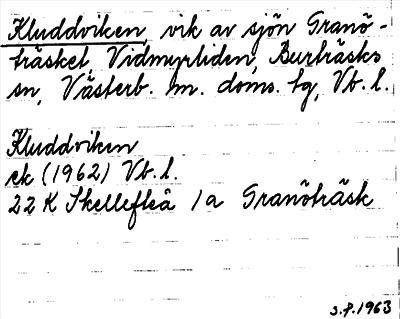 Kluddviken, vik av sjön Granö-
träsket, Vidmyrliden, Burträsks
sn, Västerb. m. doms. tg, Vb. l.
Kluddviken
ek (1962) Vb. l.
22 K Skellefteå 1a Granöträsk
3.8.1963